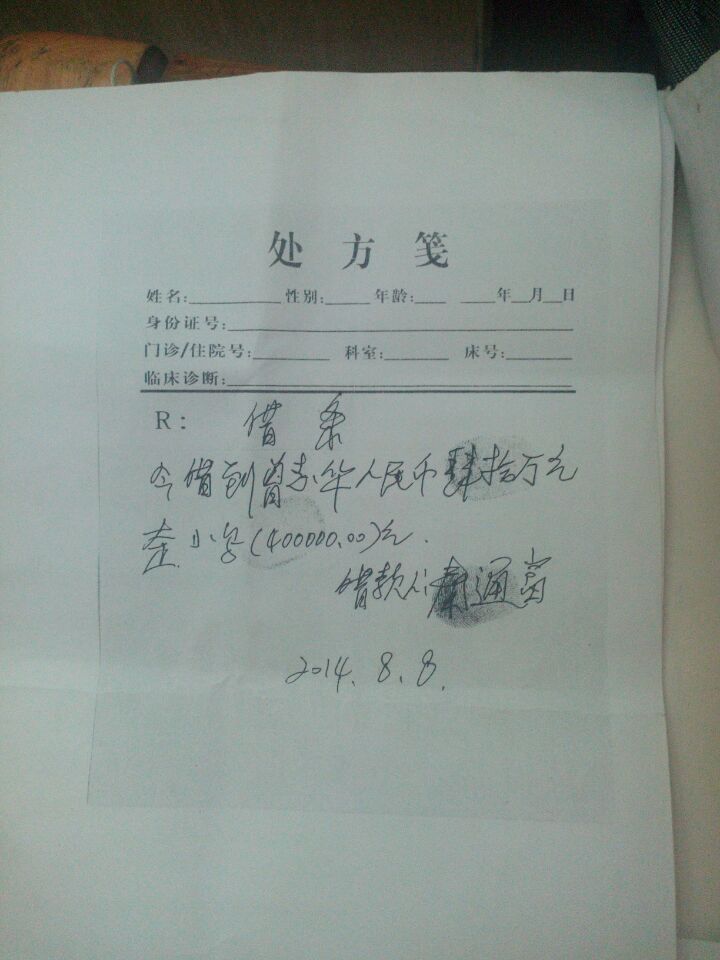 处方笺
姓名:__________ 性别:_____ 年龄:___ ____年__月__日
身份证号:
门诊/住院号:________ 科室:_______ 床号:_______
临床诊断:
R: 借条
今借到曾志华人民币肆拾万元
整 小写(400000.00)元.
借款人: 通富
2014.8.8.